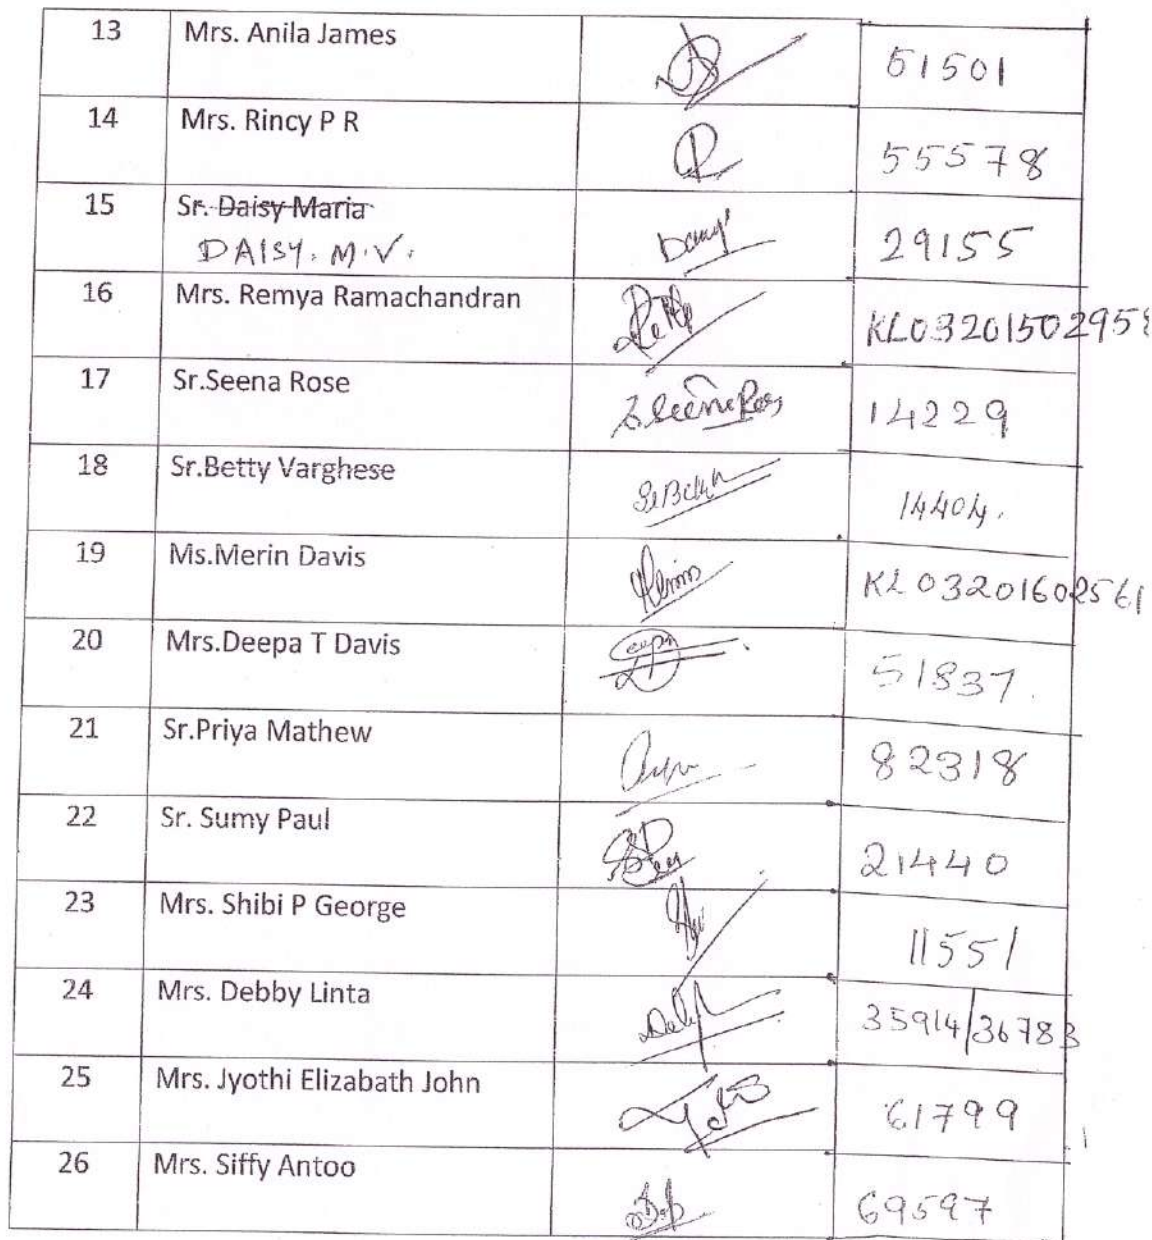 13 Mrs. Anila James 51501
14 Mrs. Rincy P R 55578
15 Sr. Daisy Maria 29155
DAISY. M.V.
16 Mrs. Remya Ramachandran KL03201502958
17 Sr.Seena Rose 14229
18 Sr.Betty Varghese 14404.
19 Ms.Merin Davis KL03201602561
20 Mrs.Deepa T Davis 51837.
21 Sr.Priya Mathew 82318
22 Sr. Sumy Paul 21440
23 Mrs. Shibi P George 11551
24 Mrs. Debby Linta 35914/36783
25 Mrs. Jyothi Elizabath John 61799
26 Mrs. Siffy Antoo 69597